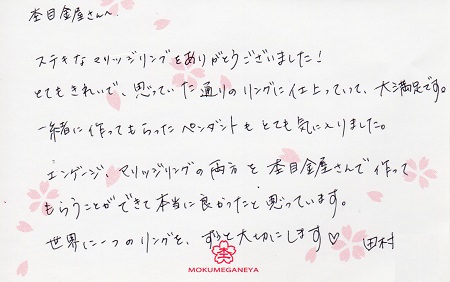 杢目金屋さんへ
ステキなマリッジリングをありがとうございました！
とてもきれいで、思っていた通りのリングに仕上っていて、大満足です。
一緒に作ってもらったペンダントもとても気に入りました。
エンゲージ、マリッジリングの両方を杢目金屋さんで作って
もらうことができて本当に良かったと思っています。
世界に一つのリングを、ずっと大切にします♡
田村
MOKUMEGANEYA